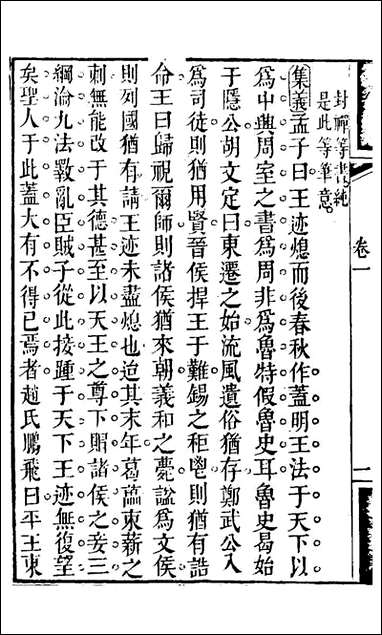 封禪等書純
是此等筆意
集義孟子曰王迹熄而後春秋作蓋明王法于天下以
為中興周至之書為周非為魯特假魯史耳魯史曷始
于隱公胡文定曰東遷之始流風遺俗猶存鄭武公入
為司徒則猶用賢晉侯捍王于難錫之秬鬯則猶有誥
命王曰歸視爾師則諸侯猶來朝義和之薨諡為文侯
則列國猶有請王迹未盡熄也迨其末年葛藟束薪之
刺無能改于其德甚至以天王之尊下賵諸侯之妾三
綱淪九法斁亂臣賊子從此接踵于天下王迹無復望
矣聖人于此蓋大有不得已焉者趙氏鵬飛曰平王東
卷一
二